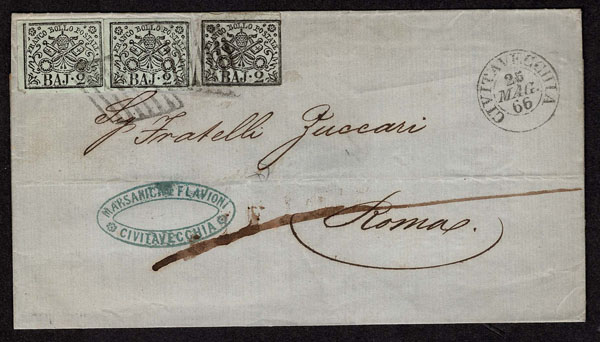 FRANCO BOLLO POSTALE
BAJ. 2
FRANCO BOLLO POSTALE
BAJ. 2
FRANCO BOLLO POSTALE
BAJ. 2
CIVITAVECCHIA
25
MAG.
66
Sig. Fratelli Zuccari
MARSANICH E FLAVIONI
CIVITAVECCHIA
Roma.